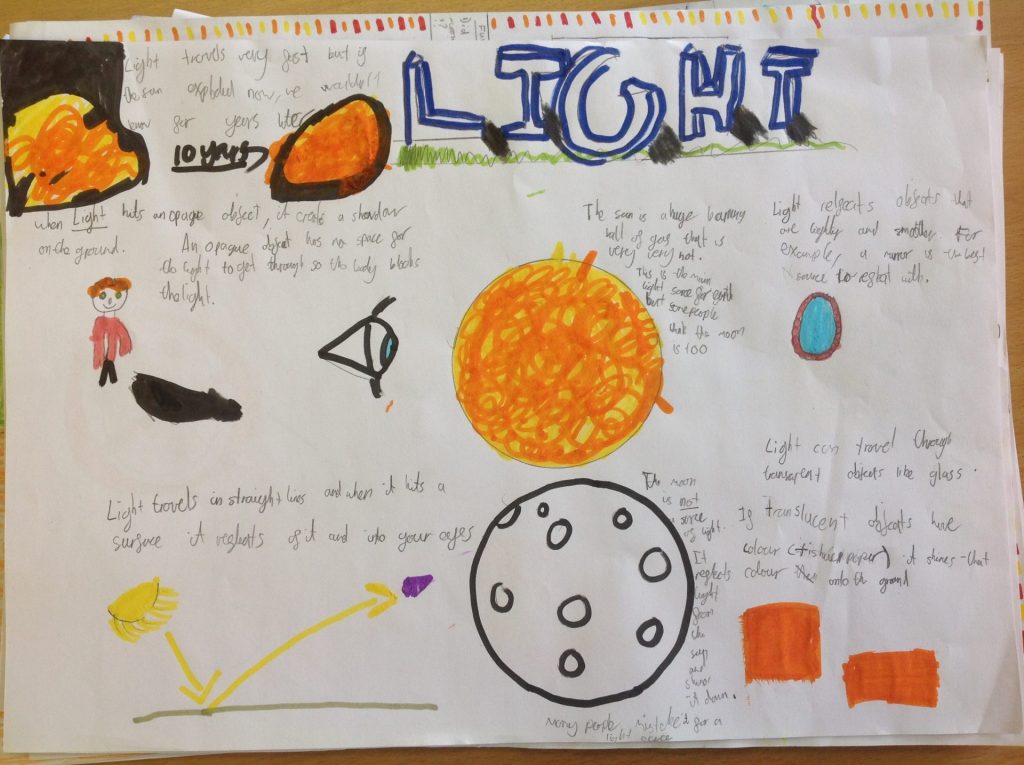 LIGHT
Light travels very fast but if
the sun exploded now, we wouldn't
know for years later
10 years
when Light hits an opaque object, it creats a shadow
on the ground.
An opaque object has no space for
the light to get through so the body blocks
the light.
The sun is a huge burning
ball of gas that is
very very hot.
This is the main
light sorce for earth
but some people
think the moon
is too
Light reflects objects that
are lighly and smother. For
example, a mirror is the best
source to reflect with.
Light travels in straight lines and when it hits a
surface it reflects of it and into your eyes
The moon
is not
a sorce
of light.
It
reflects
light
from
the
sun
and
shines
it down.
Many people mistake it for a
light sorce
Light can travel through
transparent objects like glass.
If translucent objects have
colour (tishue paper) it shines that
colour onto the ground